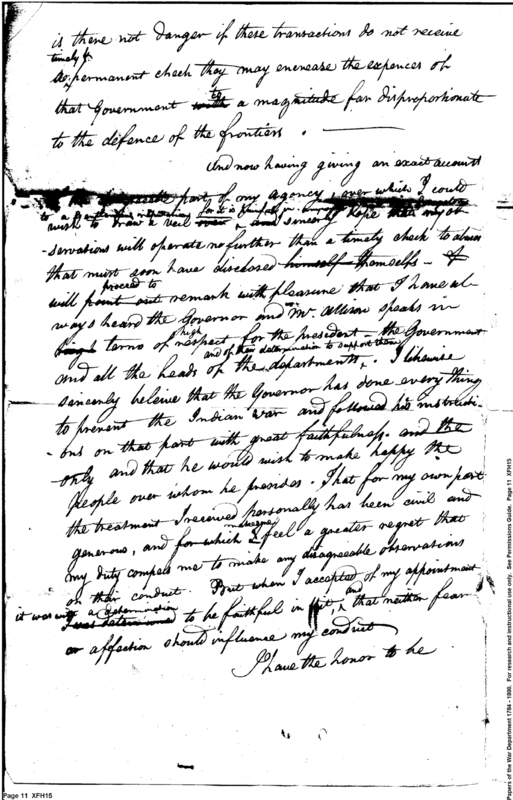 is there not danger if these transactions do not receive
timely &
a permanent check they may encrease the expences of
to
that Government with a magnitude far disproportionate
to the defence of the frontiers.
And now having giving an exact account
the disagreeable part of my agency, over which I could
to a
wish to draw a veil and sincerly hope that my ob
-servations will operate no further than a timely check to abuses
that must soon have disclosed himself themselfs - I
proceed to
will point out remark with pleasure that I have al
ways heard the Governor and Mr. Allison speaks in
high
terms of respect for the president - the Government
and of their determination to support them
and all the heads of the departments, I likewise
sincerly beleive that the Governor has done every thing
to prevent the Indian war and followed his instructi-
-ons on that part with great faithfulness. and the
only and that he would wish to make happy the
People over whom he presides. That for my own part
the treatment I received personally has been civil and
generous, and for which I feel a greater regret that
my duty compels me to make any disagreeable observations
on their conduct. But when I accepted of my appointment
it was with a determination and
I was determined to be faithful in it, that neither fear
or affection should influence my conduct
I have the honor to be
Page 11 XFH15
Papers of the War Department 1784 - 1800. For research and instructional use only. See Permissions Guide. Page 11 XFH15